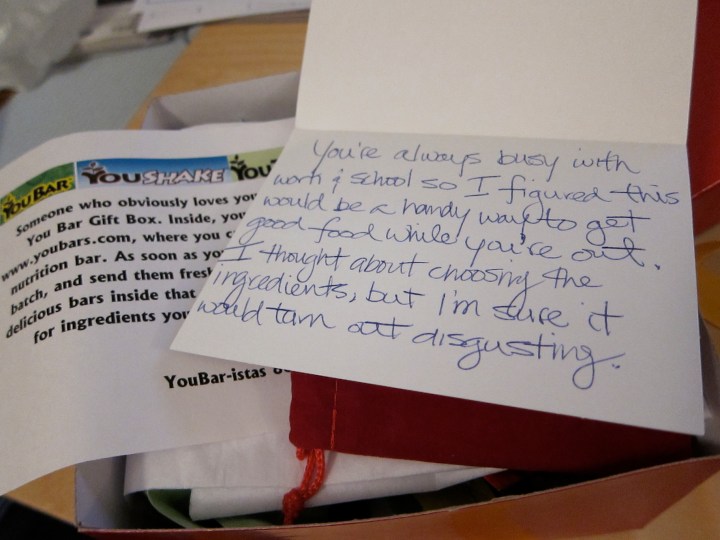 YOU BAR YOUSHAKE YOU
Someone who obviously loves you
You Bar Gift Box. Inside, you
www.youbars.com, where you c
nutrition bar. As soon as yo
batch, and send them fresh
delicious bars inside that
for ingredients you
YouBar-istas
You're always busy with
work & school so I figured this
would be a handy way to get
good food while you're out.
I thought about choosing the
ingredients, but I'm sure it
would turn out disgusting.